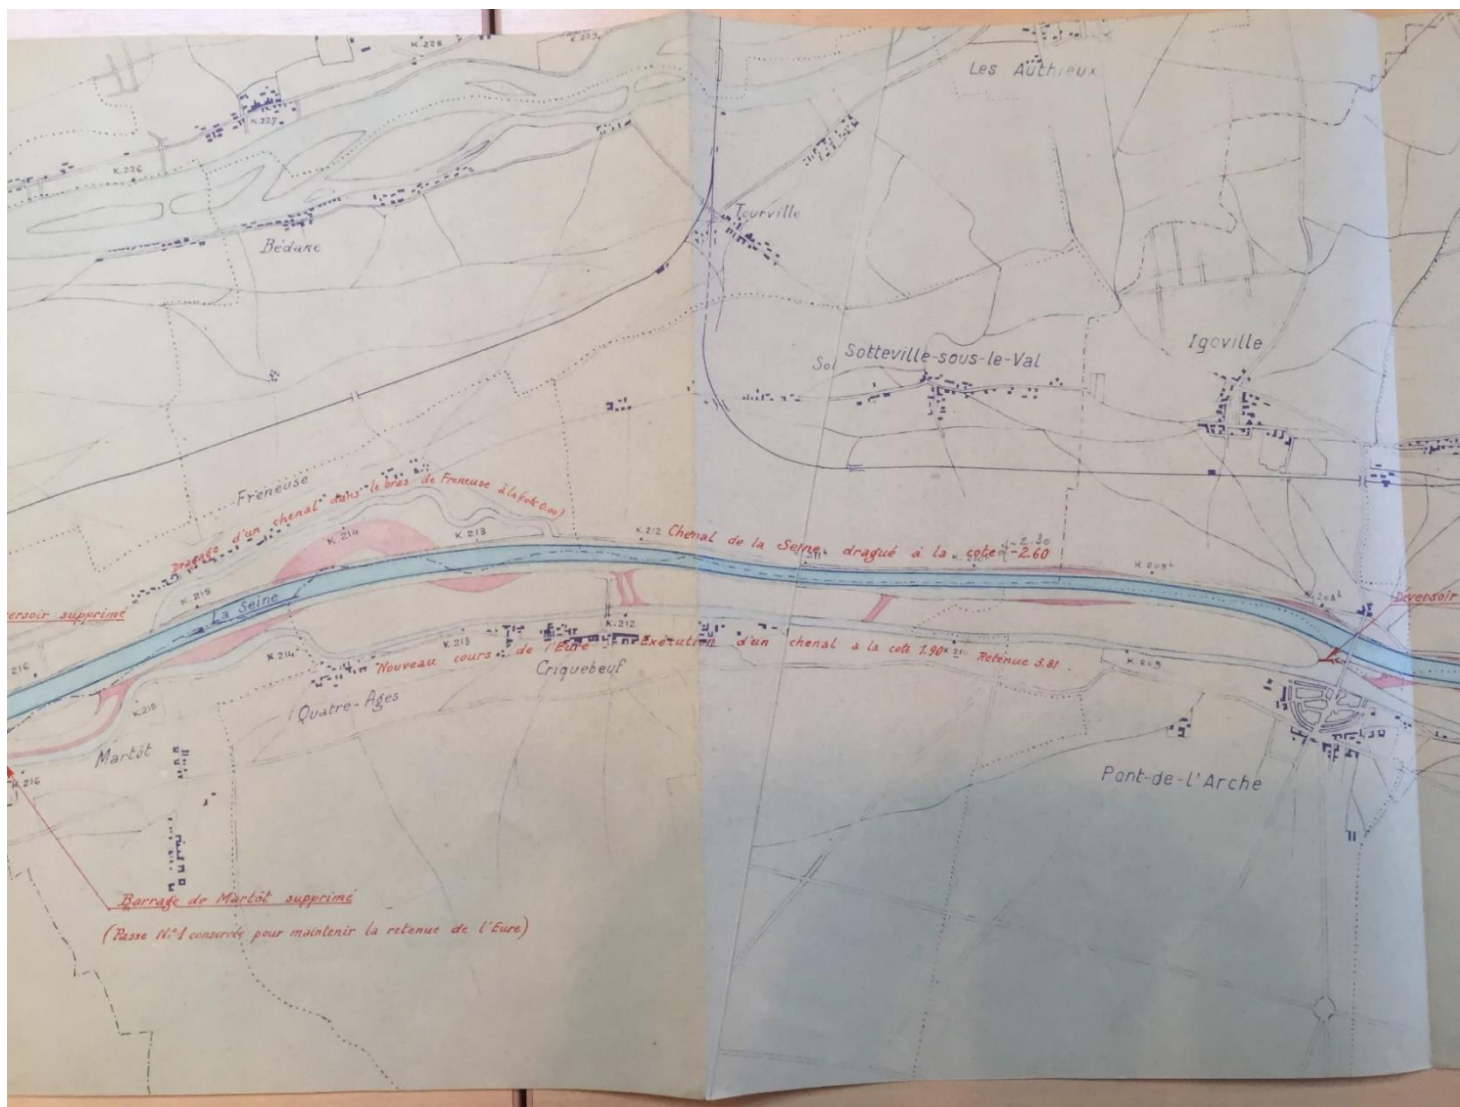 K.228
K.229
Les Authieux
K.227
K.226
Tourville
Bédane
Igoville
Sotteville-sous-le-Val
Sot
Freneuse
Dragage d'un chenal dans le bras de Freneuse à la cote 0.00)
K.214
K.213
K.212
Chenal de la Seine dragué à la cote - 2.30
-2.60
K.215
La Seine
supprimé
Déversoir
K.216
K.214
K.213
K.212
Nouveau cours de l'Eure
Exécution d'un chenal à la cote 1.90
Retenue 3.81
K.209
Criquebeuf
Quatre-Ages
K.215
Martôt
K.216
Pont-de-l'Arche
Barrage de Martôt supprimé
(Passe N°1 conservée pour maintenir la retenue de l'Eure)